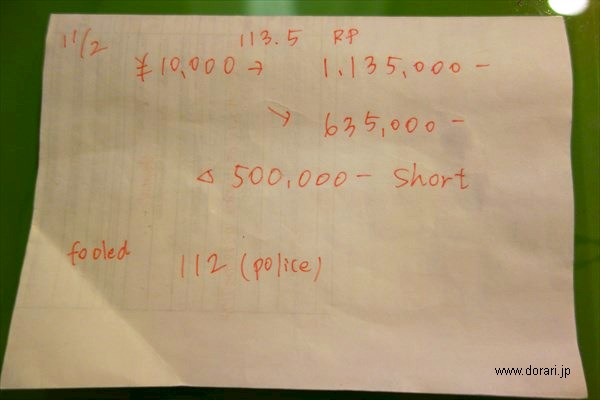 11/2 113.5 RP
¥10,000 → 1,135,000 -
↘ 635,000 -
◁ 500,000 - Short
fooled 112 (police)
www.dorari.jp